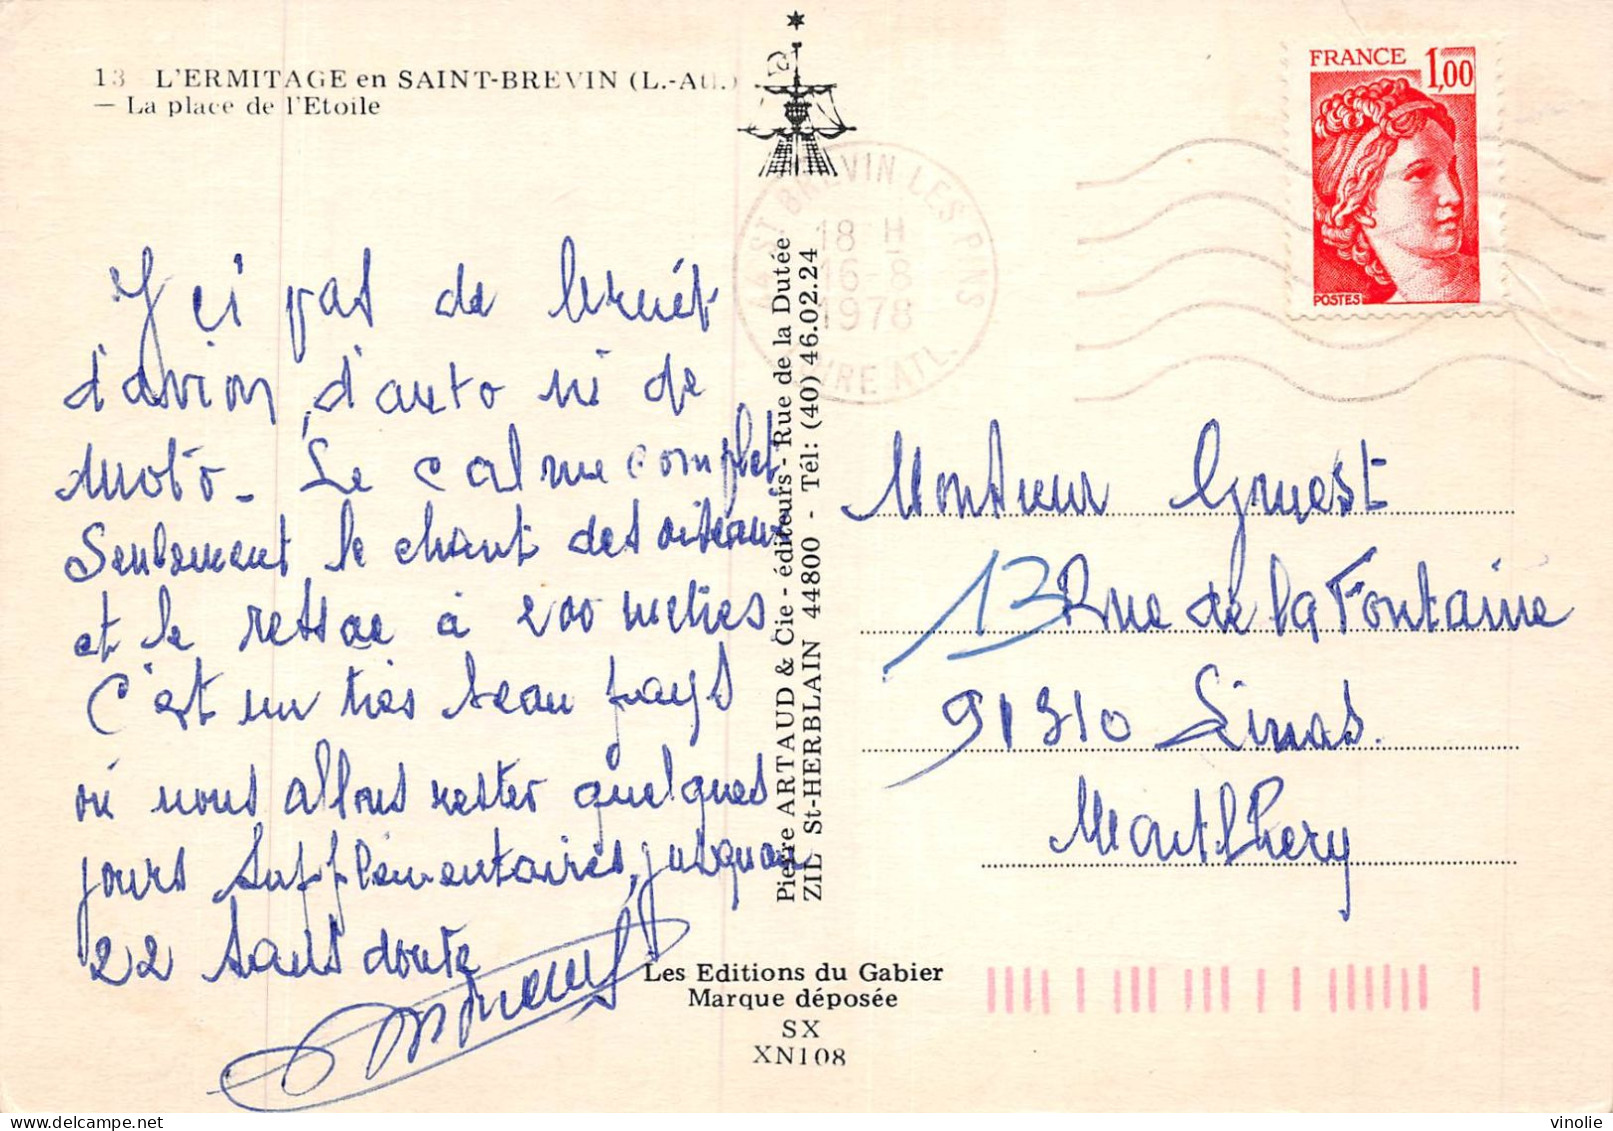 13 L'ERMITAGE en SAINT-BREVIN (L.-Atl.)
— La place de l'Etoile
FRANCE 1,00
POSTES
44 ST BREVIN LES PINS
18 H
16-8
1978
LOIRE ATL.
Y ci pas de bruit
d'avion, d'auto ni de
moto - Le calme complet
Seulement le chant des oiseaux
et le ressac à 200 mètres
C'est un très beau pays
où nous allons rester quelques
jours supplémentaires, jusquau
22 sans doute
Pierre ARTAUD & Cie - éditeurs - Rue de la Dutée
ZIL St-HERBLAIN 44800 - Tél: (40) 46.02.24
Monsieur
13 Rue de la Fontaine
91310 Linas
Montlhery
Les Editions du Gabier
Marque déposée
SX
XN108
vinolie